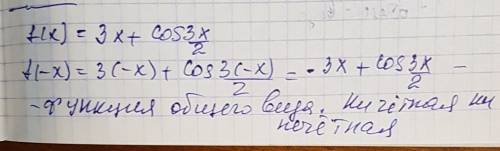 f(x) = 3x + cos 3x/2
f(-x) = 3(-x) + cos 3(-x)/2 = -3x + cos 3x/2 -
- функция общего вида. Ни чётная ни
нечётная